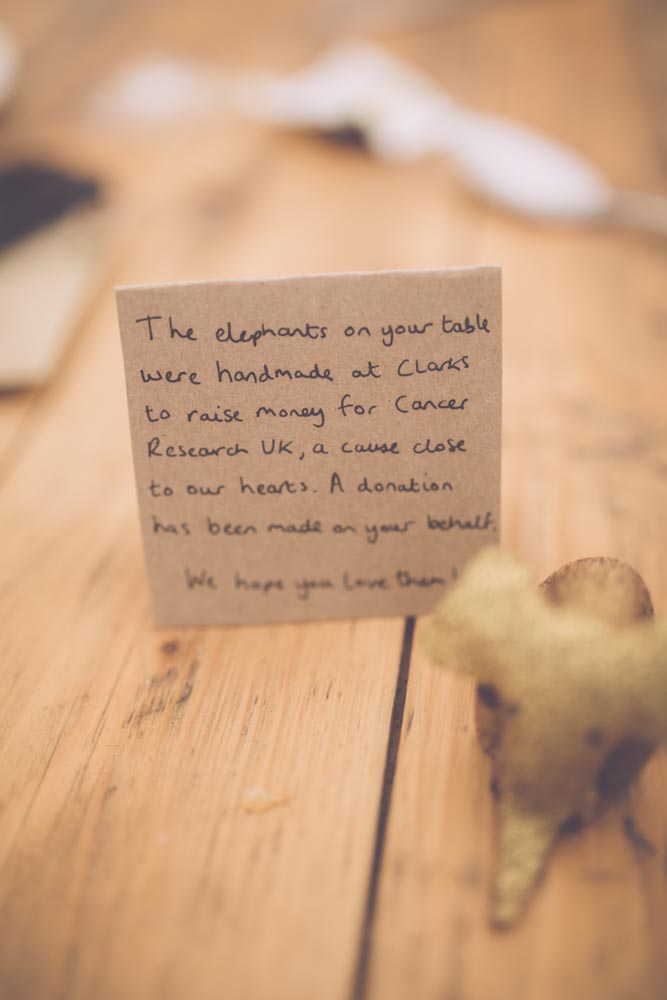 The elephants on your table
were handmade at Clarks
to raise money for Cancer
Research UK, a cause close
to our hearts. A donation
has been made on your behalf.
We hope you love them!